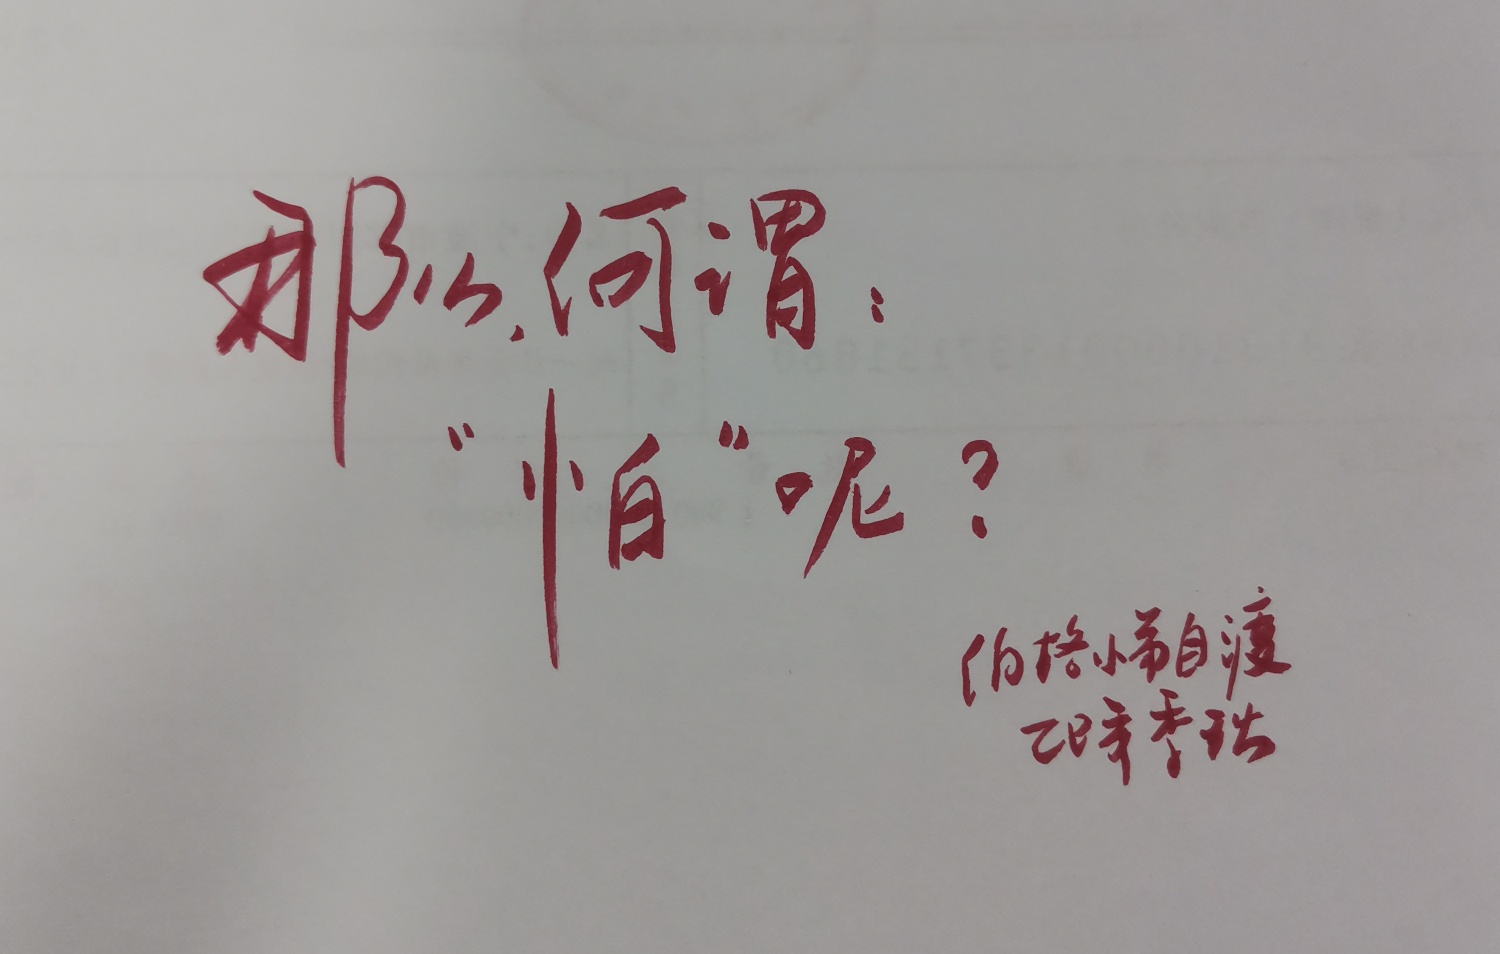 那么,何谓:
“怕”呢?
伯格小弟自渡
乙巳年季秋